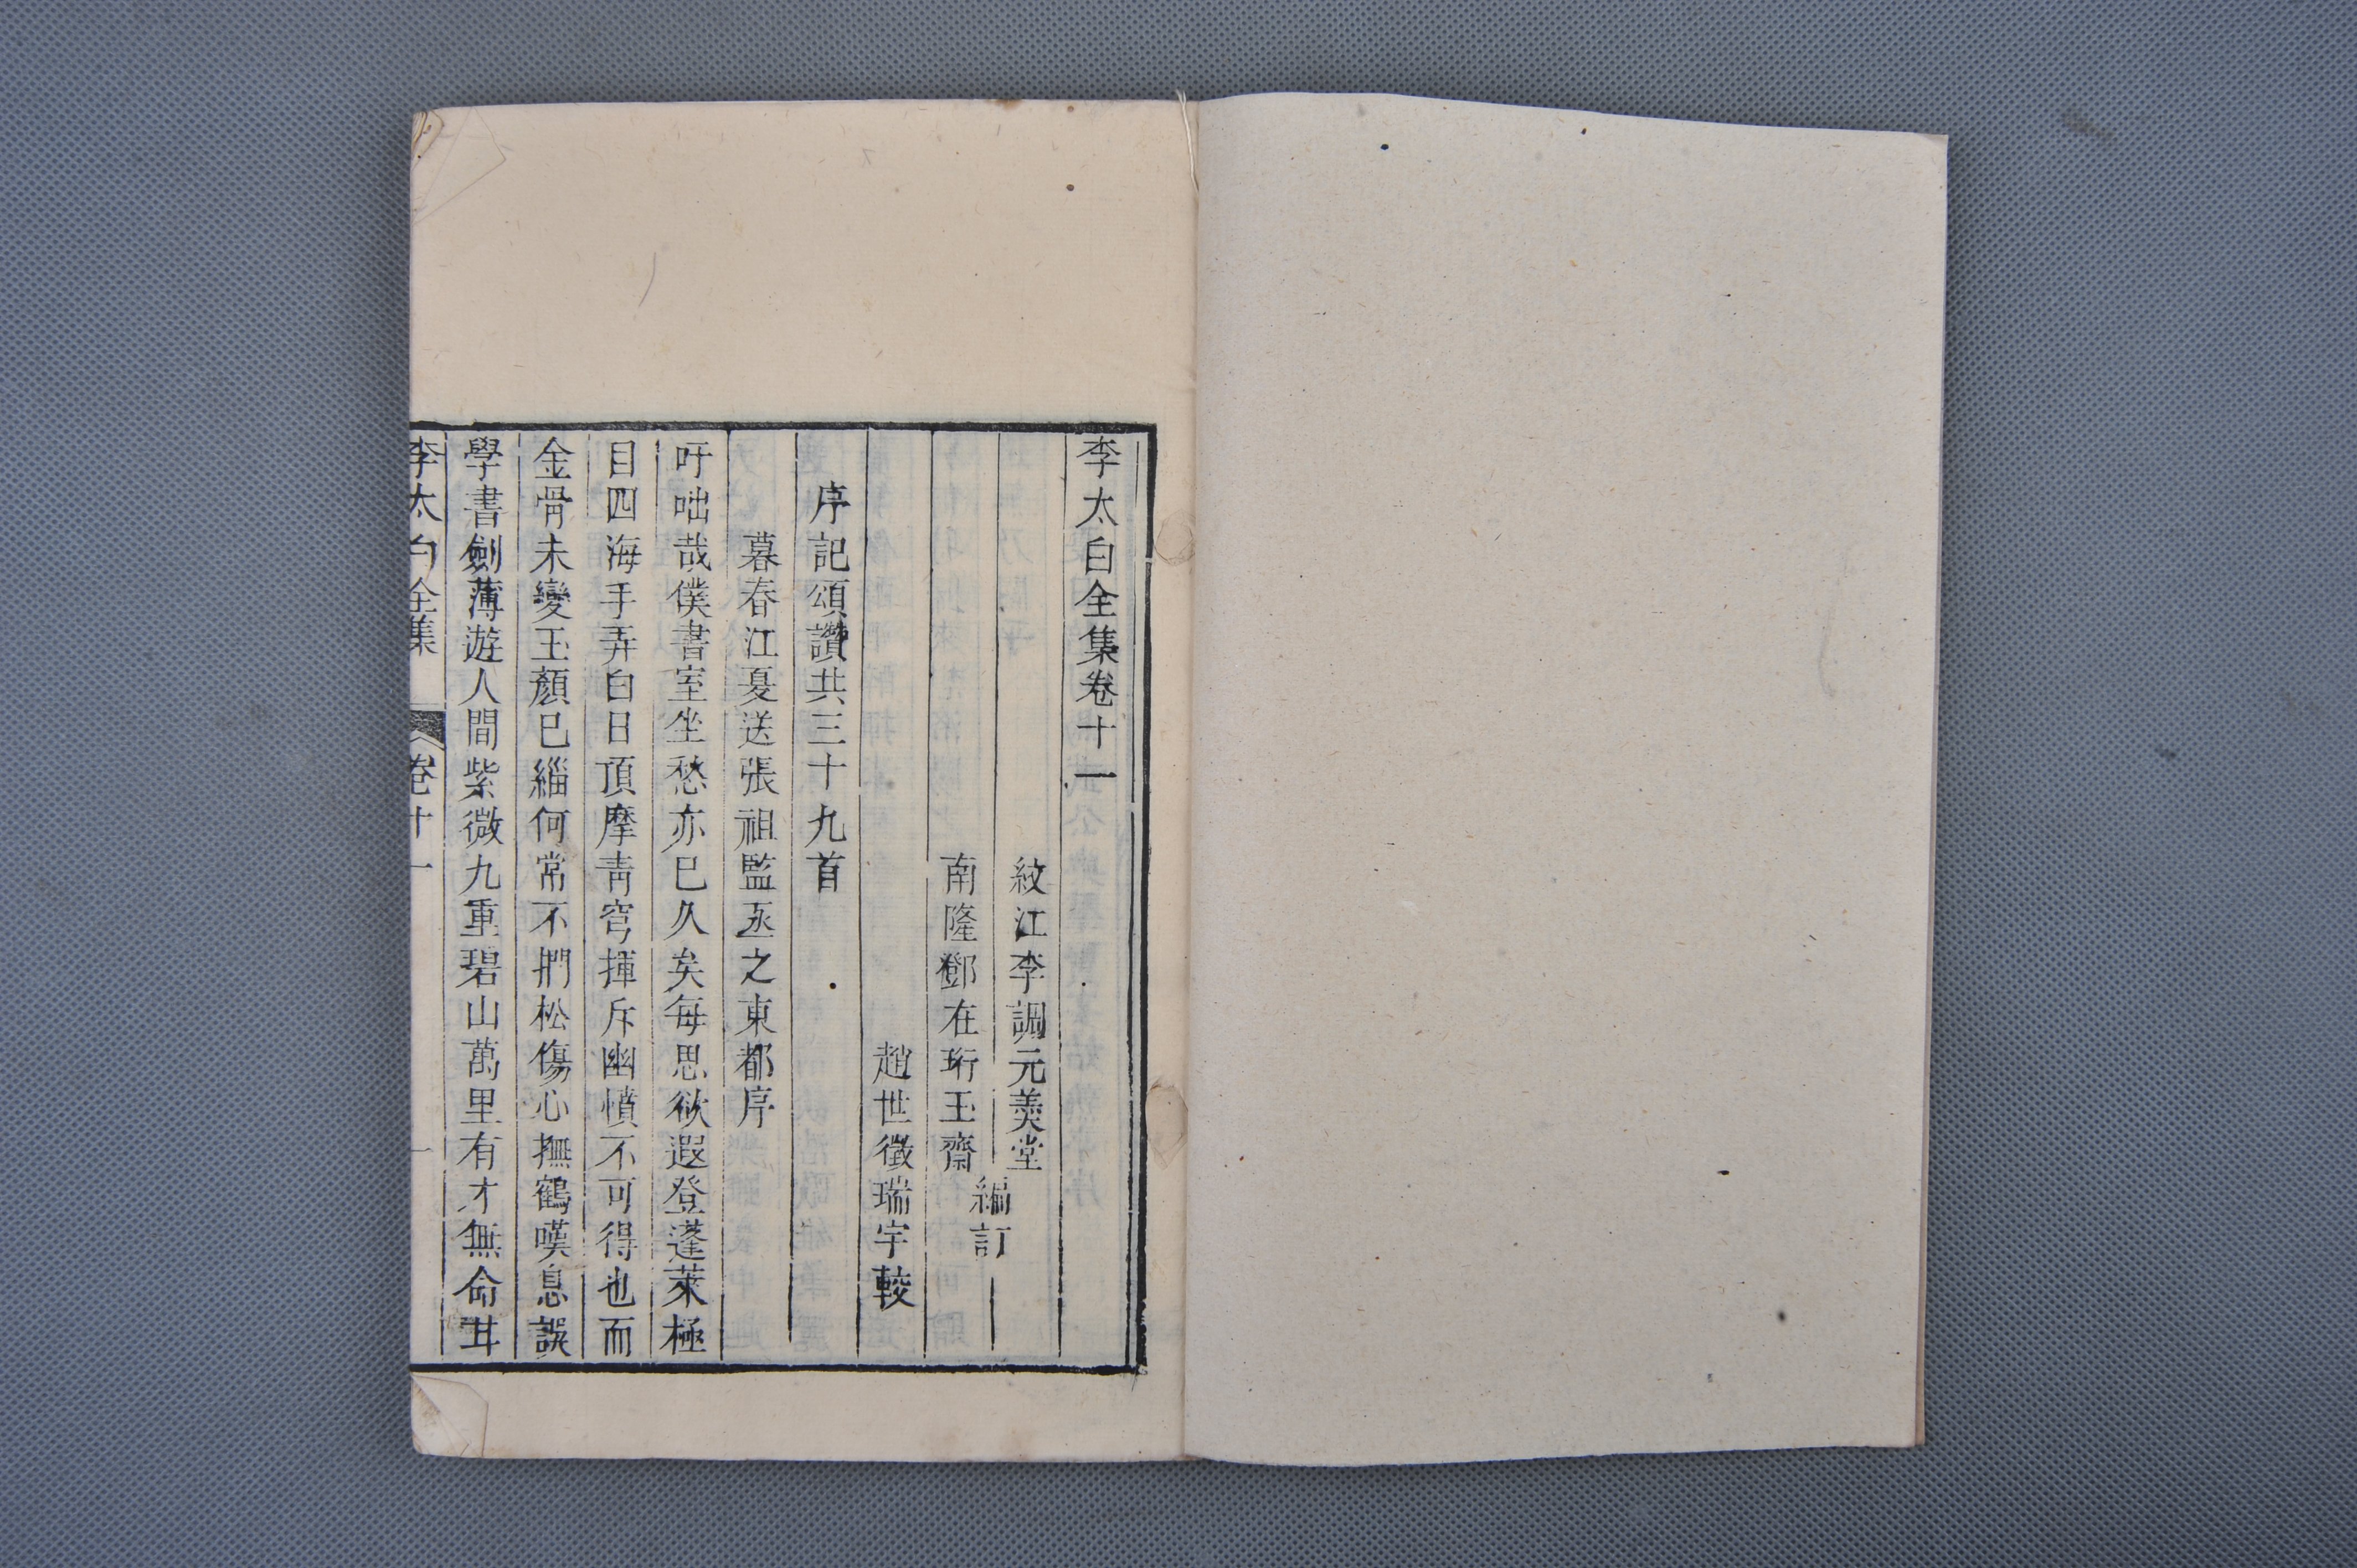 李太白全集卷十一
紋江李調元羙堂
南隆鄧在珩玉齋
編訂
趙世徵瑞宇較
序記頌讚共三十九首
暮春江夏送張祖監丞之東都序
吁咄哉僕書室坐愁亦已久矣每思欲遐登蓬萊極
目四海手弄白日頂摩靑穹揮斥幽憤不可得也而
金骨未變玉顏已緇何常不捫松傷心撫鶴嘆息誤
學書劍薄遊人間紫微九重碧山萬里有才無命甘
李太白全集 卷十一 一